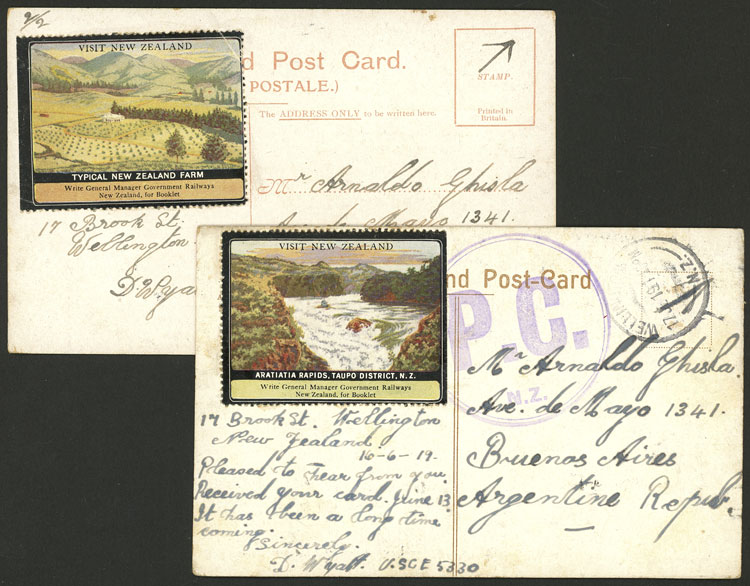 2/2
VISIT NEW ZEALAND
TYPICAL NEW ZEALAND FARM
Write General Manager Government Railways
New Zealand, for Booklet
d Post Card.
POSTALE.)
The ADDRESS ONLY to be written here.
STAMP.
Printed in
Britain.
Mr Arnaldo Ghisla
Av. de Mayo 1341.
17 Brook St.
Wellington
D. Wya
VISIT NEW ZEALAND
ARATIATIA RAPIDS, TAUPO DISTRICT, N.Z.
Write General Manager Government Railways
New Zealand, for Booklet
nd Post-Card
P.C.
N.Z.
N.Z.
Mr Arnaldo Ghisla.
Ave. de Mayo 1341.
Buenos Aires
Argentine Repub.
17 Brook St. Wellington
New Zealand.
16-6-19.
Pleased to hear from you.
Received your card. June 13
It has been a long time
coming.
Sincerely.
D. Wyatt. USCE 5330